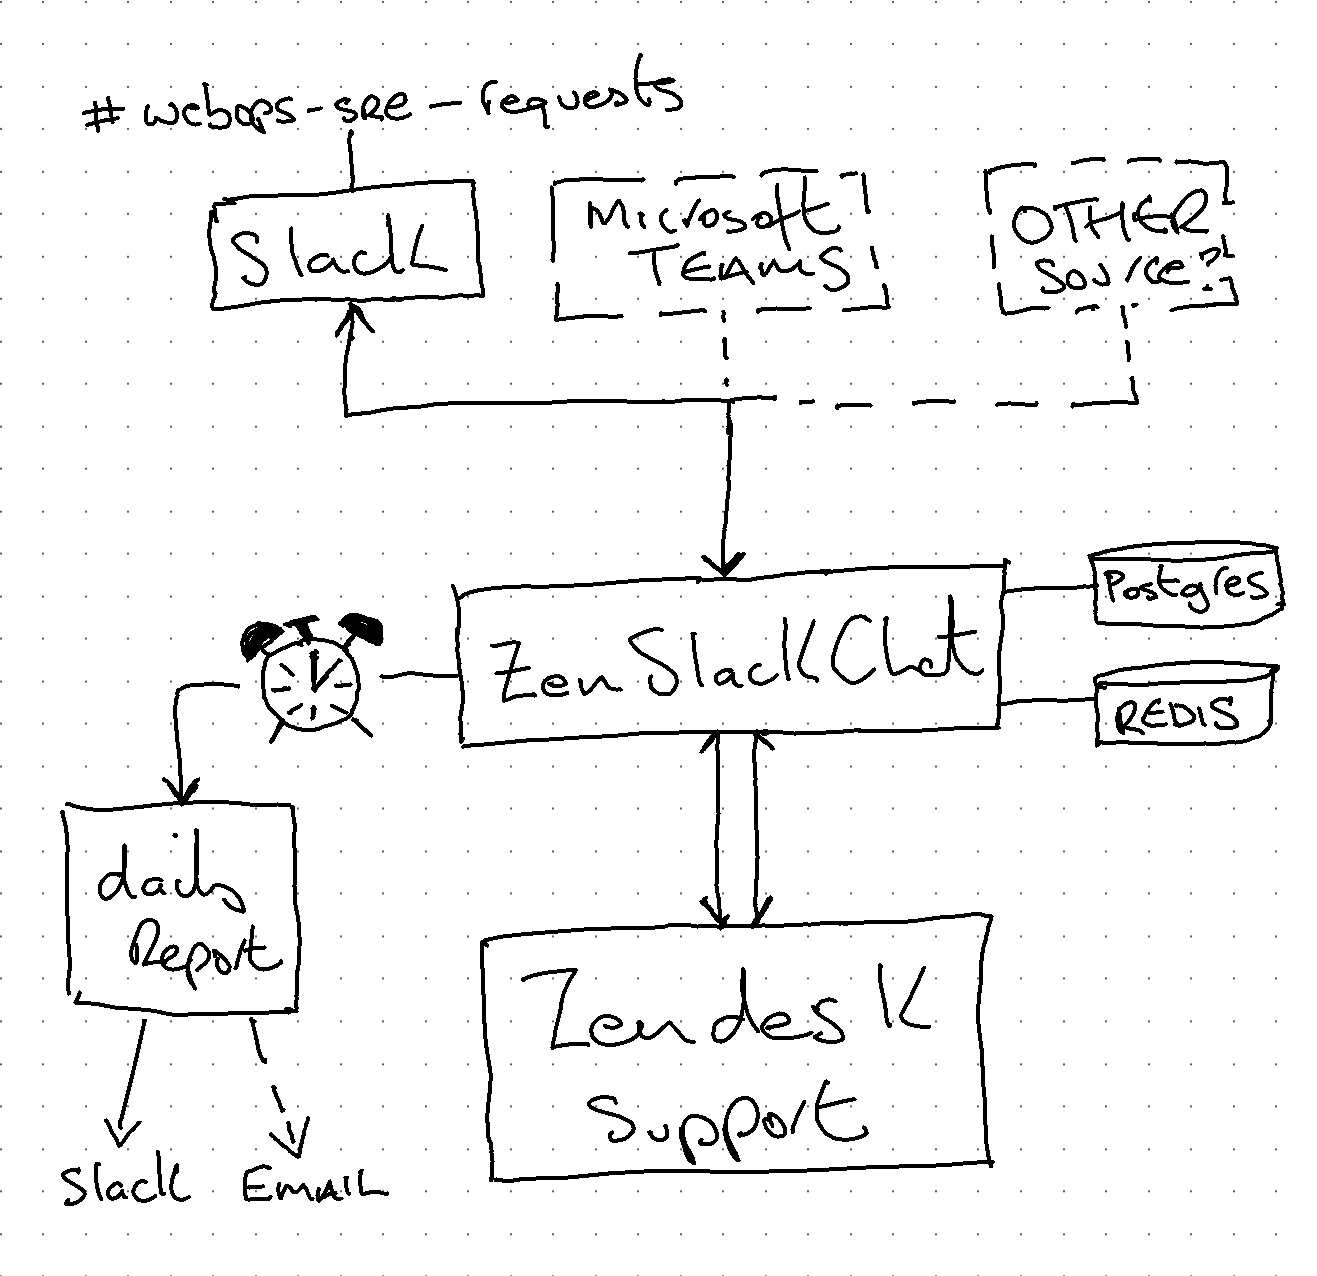 #webops-sre-requests
Slack
Microsoft
TEAMS
OTHER
Source?
Postgres
ZenSlackChat
REDIS
daily
Report
Zendesk
Support
Slack
EMAIL